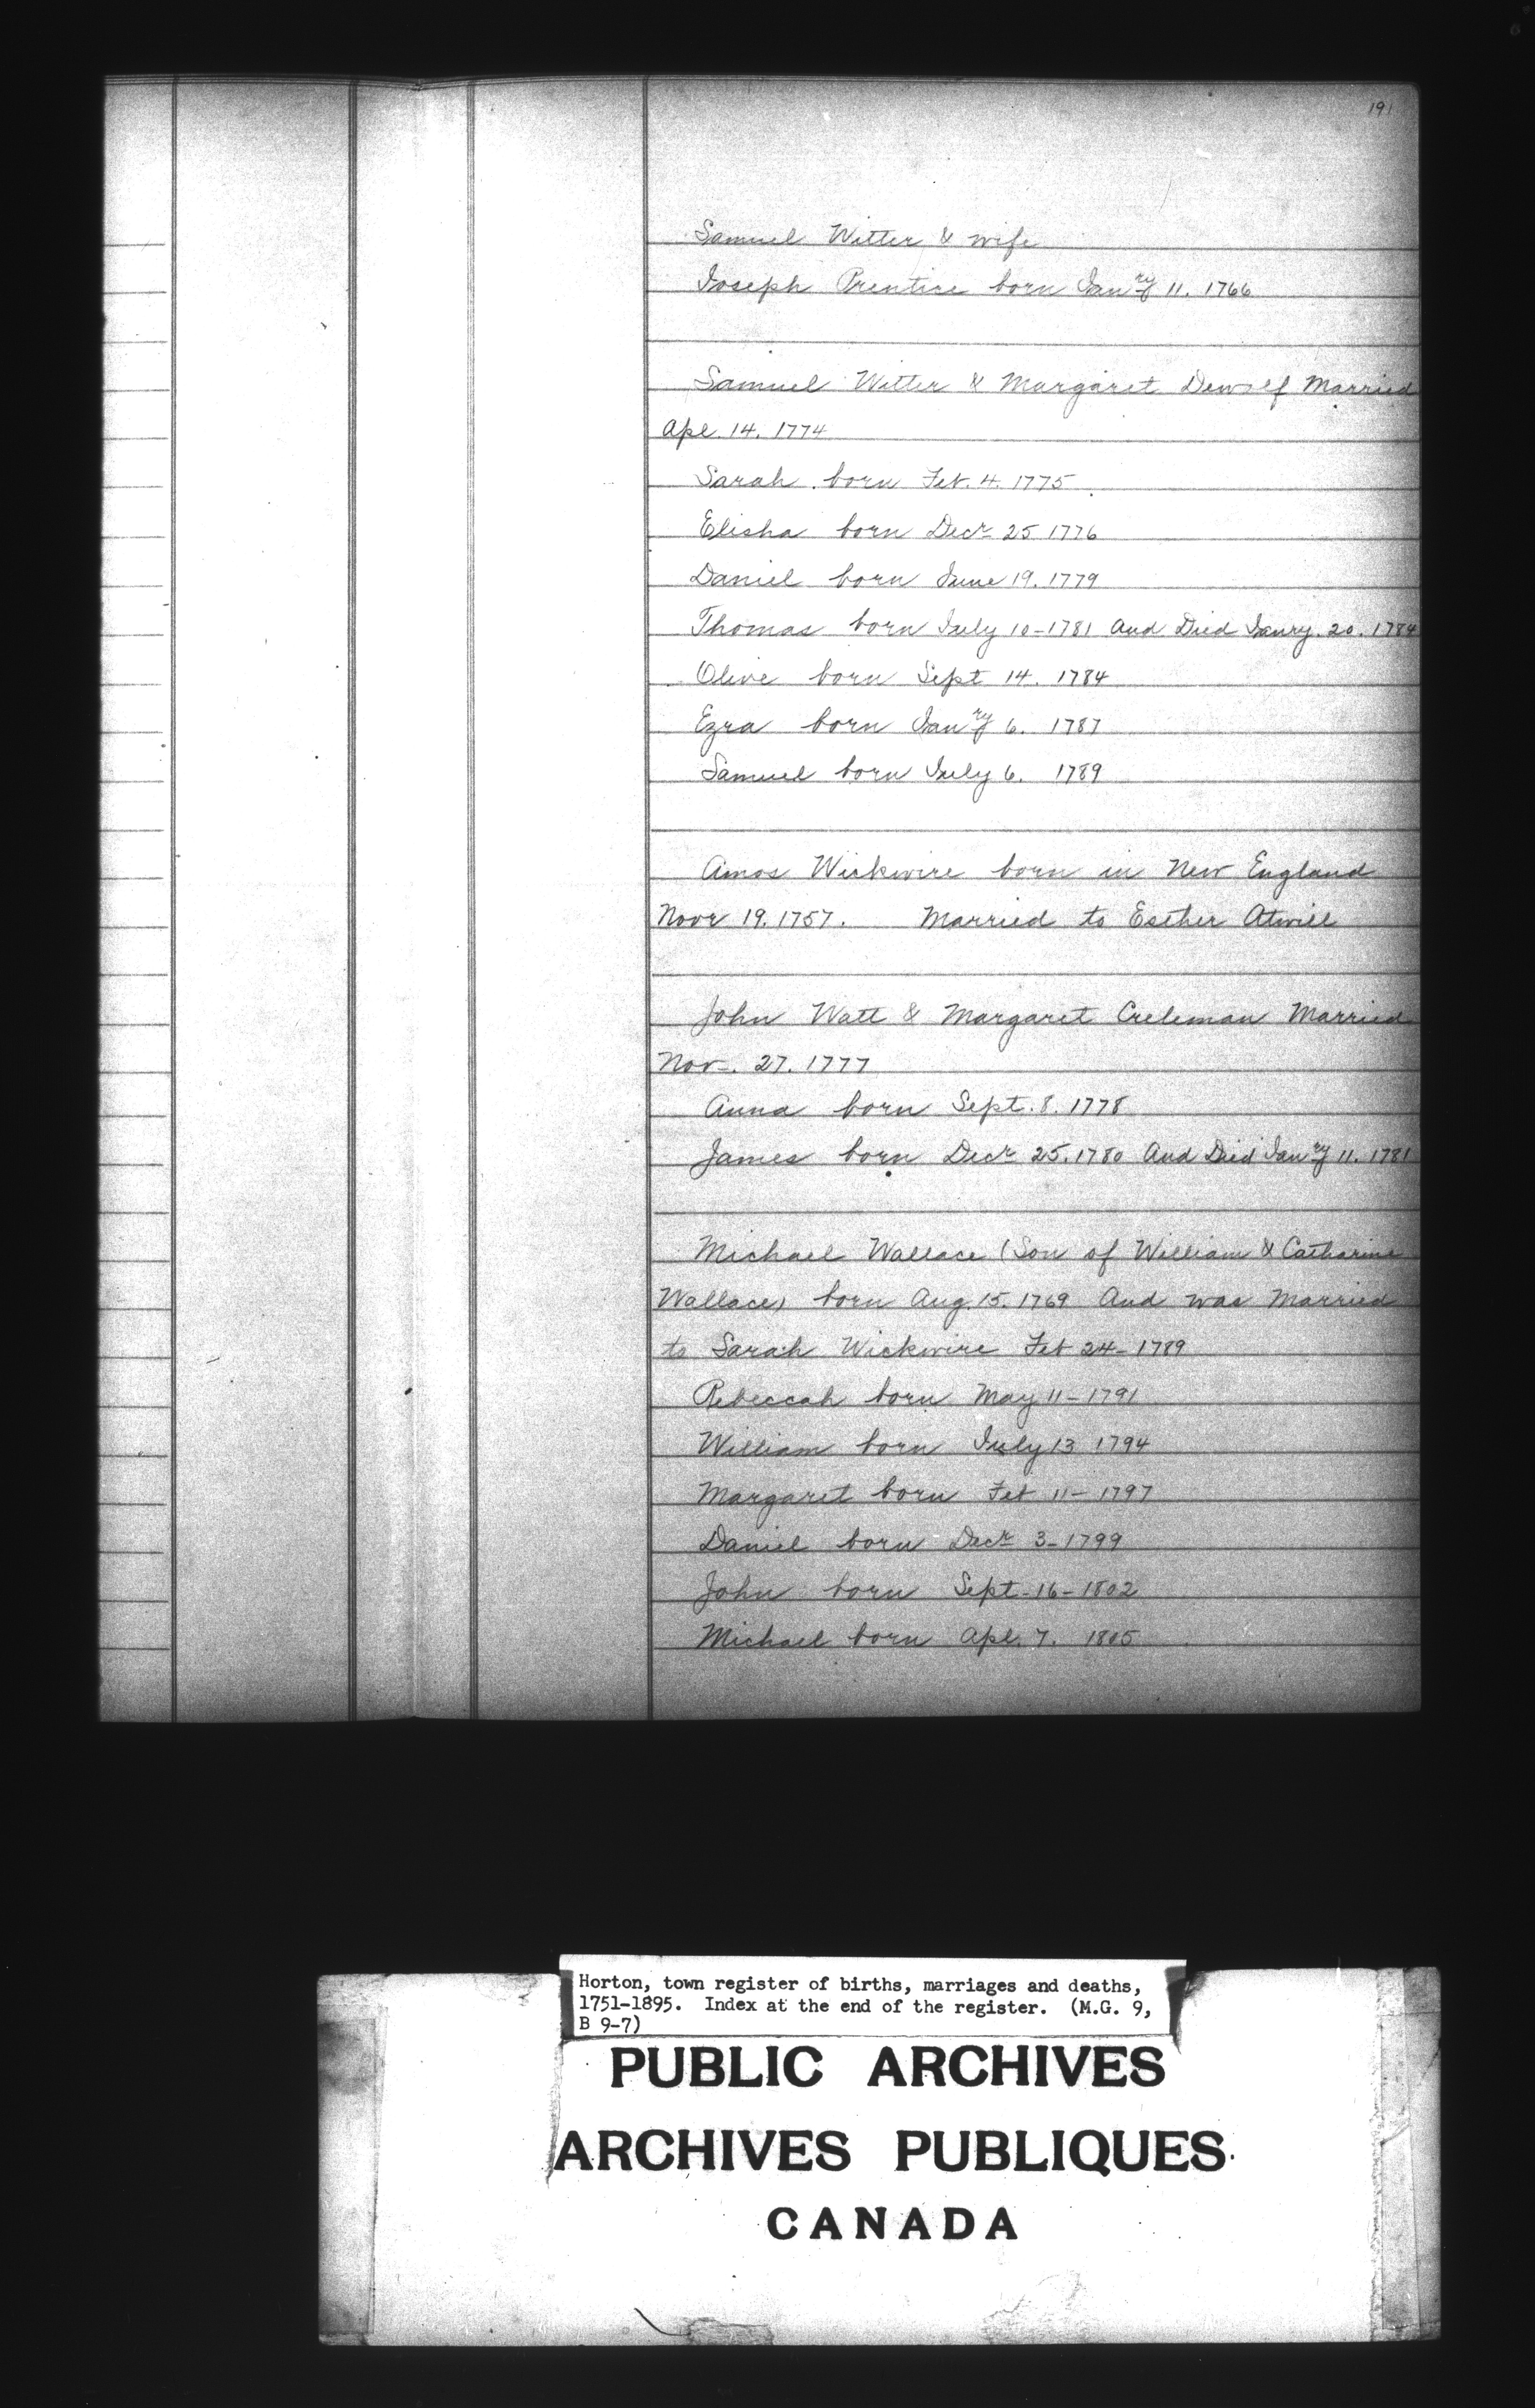 191
Samuel Witter & wife
Joseph Prentice born Janry 11. 1766
Samuel Witter & Margaret Dewolf Married
Apl. 14. 1774
Sarah born Feb. 4. 1775
Elisha born Decr 25 1776
Daniel born June 19. 1779
Thomas born July 10-1781 And Died Janry. 20. 1784
Olive born Sept 14. 1784
Ezra born Janry 6. 1787
Samuel born July 6. 1789
Amos Wickwire born in New England
Novr 19. 1757. Married to Esther Atwill
John Watt & Margaret Creleman Married
Nov. 27. 1777
Anna born Sept. 8. 1778
James born Decr 25. 1780 And Died Janry 11. 1781
Michael Wallace (Son of William & Catharine
Wallace) born Aug. 15. 1769 And was Married
to Sarah Wickwire Feb 24-1789
Rebeccah born May 11-1791
William born July 13 1794
Margaret born Feb 11-1797
Daniel born Decr 3-1799
John born Sept-16-1802
Michael born Apl. 7. 1805
Horton, town register of births, marriages and deaths,
1751-1895. Index at the end of the register. (M.G. 9,
B 9-7)
PUBLIC ARCHIVES
ARCHIVES PUBLIQUES
CANADA